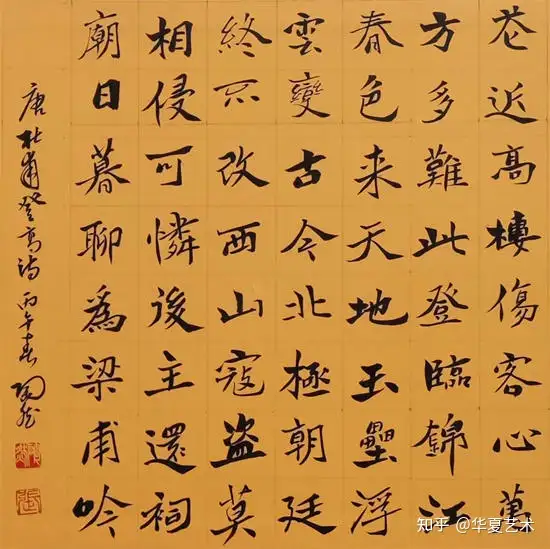 花近高樓傷客心萬
方多難此登臨錦江
春色来天地玉壘浮
雲變古今北極朝廷
終不改西山寇盗莫
相侵可憐後主還祠
廟日暮聊爲梁甫吟
唐杜甫登高詩丙午春
知乎 @华夏艺术